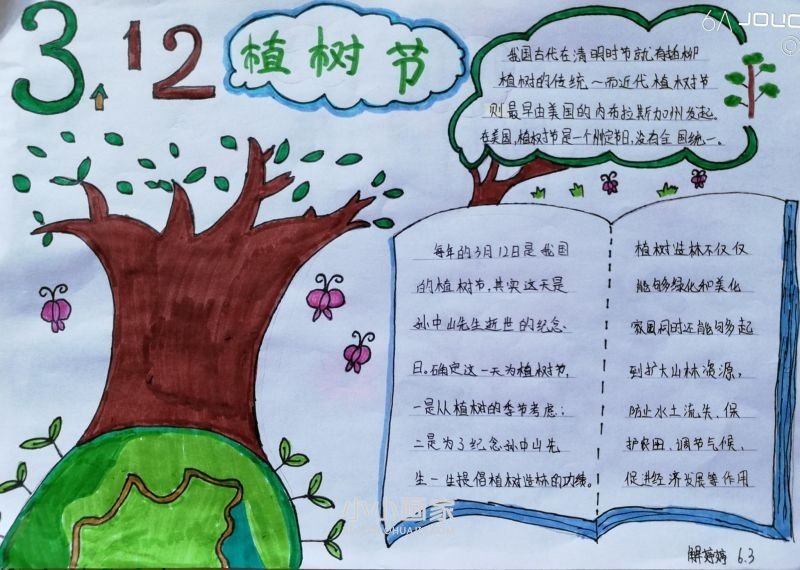 3 12
植树节
6A JOUO
我国古代在清明时节就有植柳
植树的传统～而近代植树节
则最早由美国的内布拉斯加州发起。
在美国,植树节是一个州定节日,没有全国统一。
每年的3月12日是我国
的植树节,其实这天是
孙中山先生逝世的纪念
日。确定这一天为植树节,
一是从植树的季节考虑;
二是为了纪念孙中山先
生一生提倡植树造林的功绩。
植树造林不仅仅
能够绿化和美化
家园同时还能够多起
到扩大山林资源,
防止水土流失、保
护农田、调节气候、
促进经济发展等作用
小小画家
解婷婷 6.3